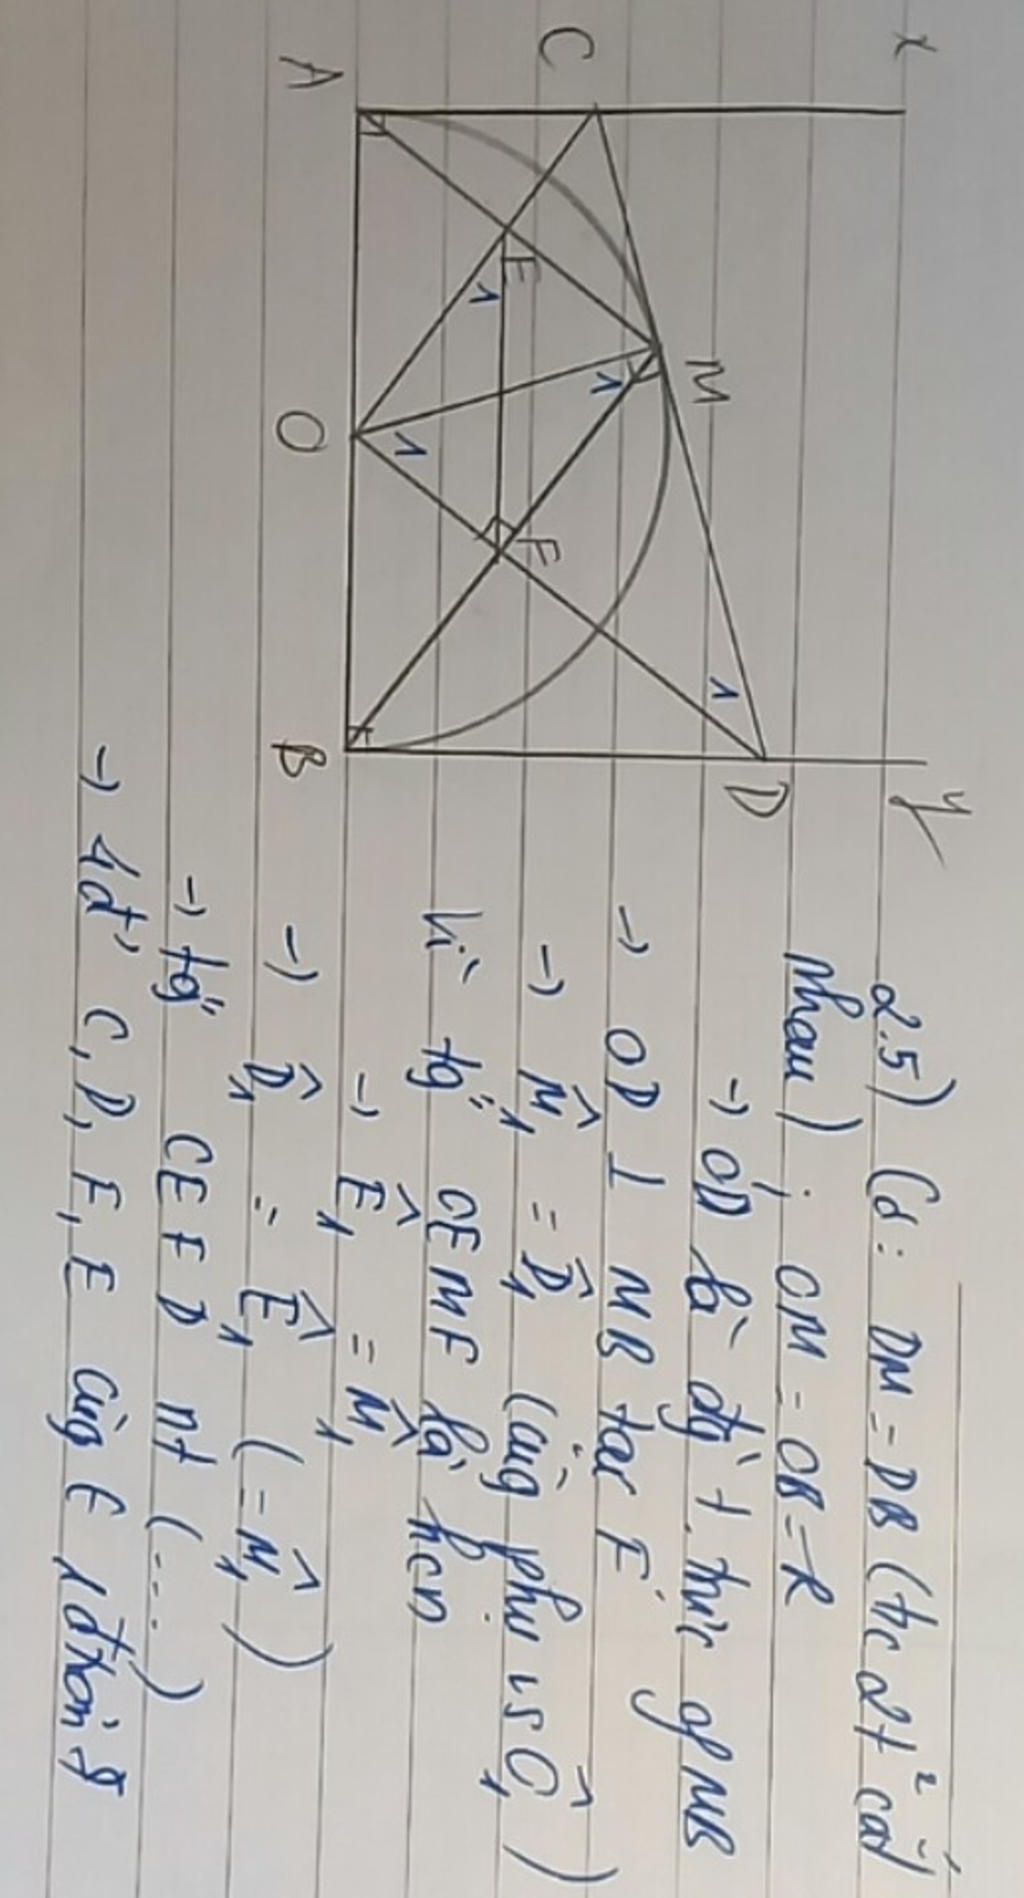 x
y
C
D
M
E
F
1
1
1
1
A
O
B
2.5) Có: DM = DB (t/c 2 t² cắt
nhau) ; OM = OB = R
→ OD là đg` t. trực of MB
→ OD ⊥ MB tại F
→ M̂₁ = D̂₁ (cùng phụ vs Ô₁)
Vì tg" OEMF là hcn
→ Ê₁ = M̂₁
→ D̂₁ = Ê₁ (= M̂₁)
→ tg" CEFD nt (...)
→ 4đ' C, D, F, E cùng ∈ 1 đtròn